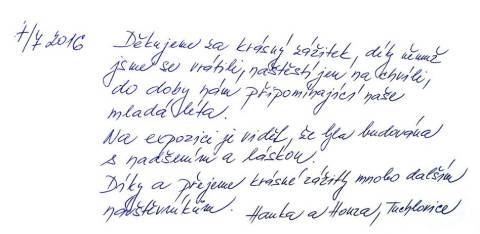 7/7 2016 Děkujeme za krásný zážitek, díky němuž
jsme se vrátili, naštěstí jen na chvíli,
do doby nám připomínající naše
mladá léta.
Na expozici je vidět, že byla budována
s nadšením a láskou.
Díky a přejeme krásné zážitky mnoho dalším
návštěvníkům. Hanka a Honza, Tuchlovice